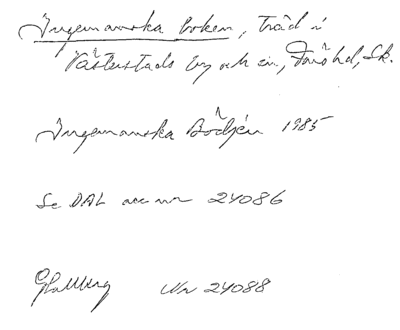 Ingemanska boken, träd i
Västerstads by och sn, Färs hd, Sk.
Ingemanska Bödjén 1985
Se DAL acc nr 24086
Nr 24088